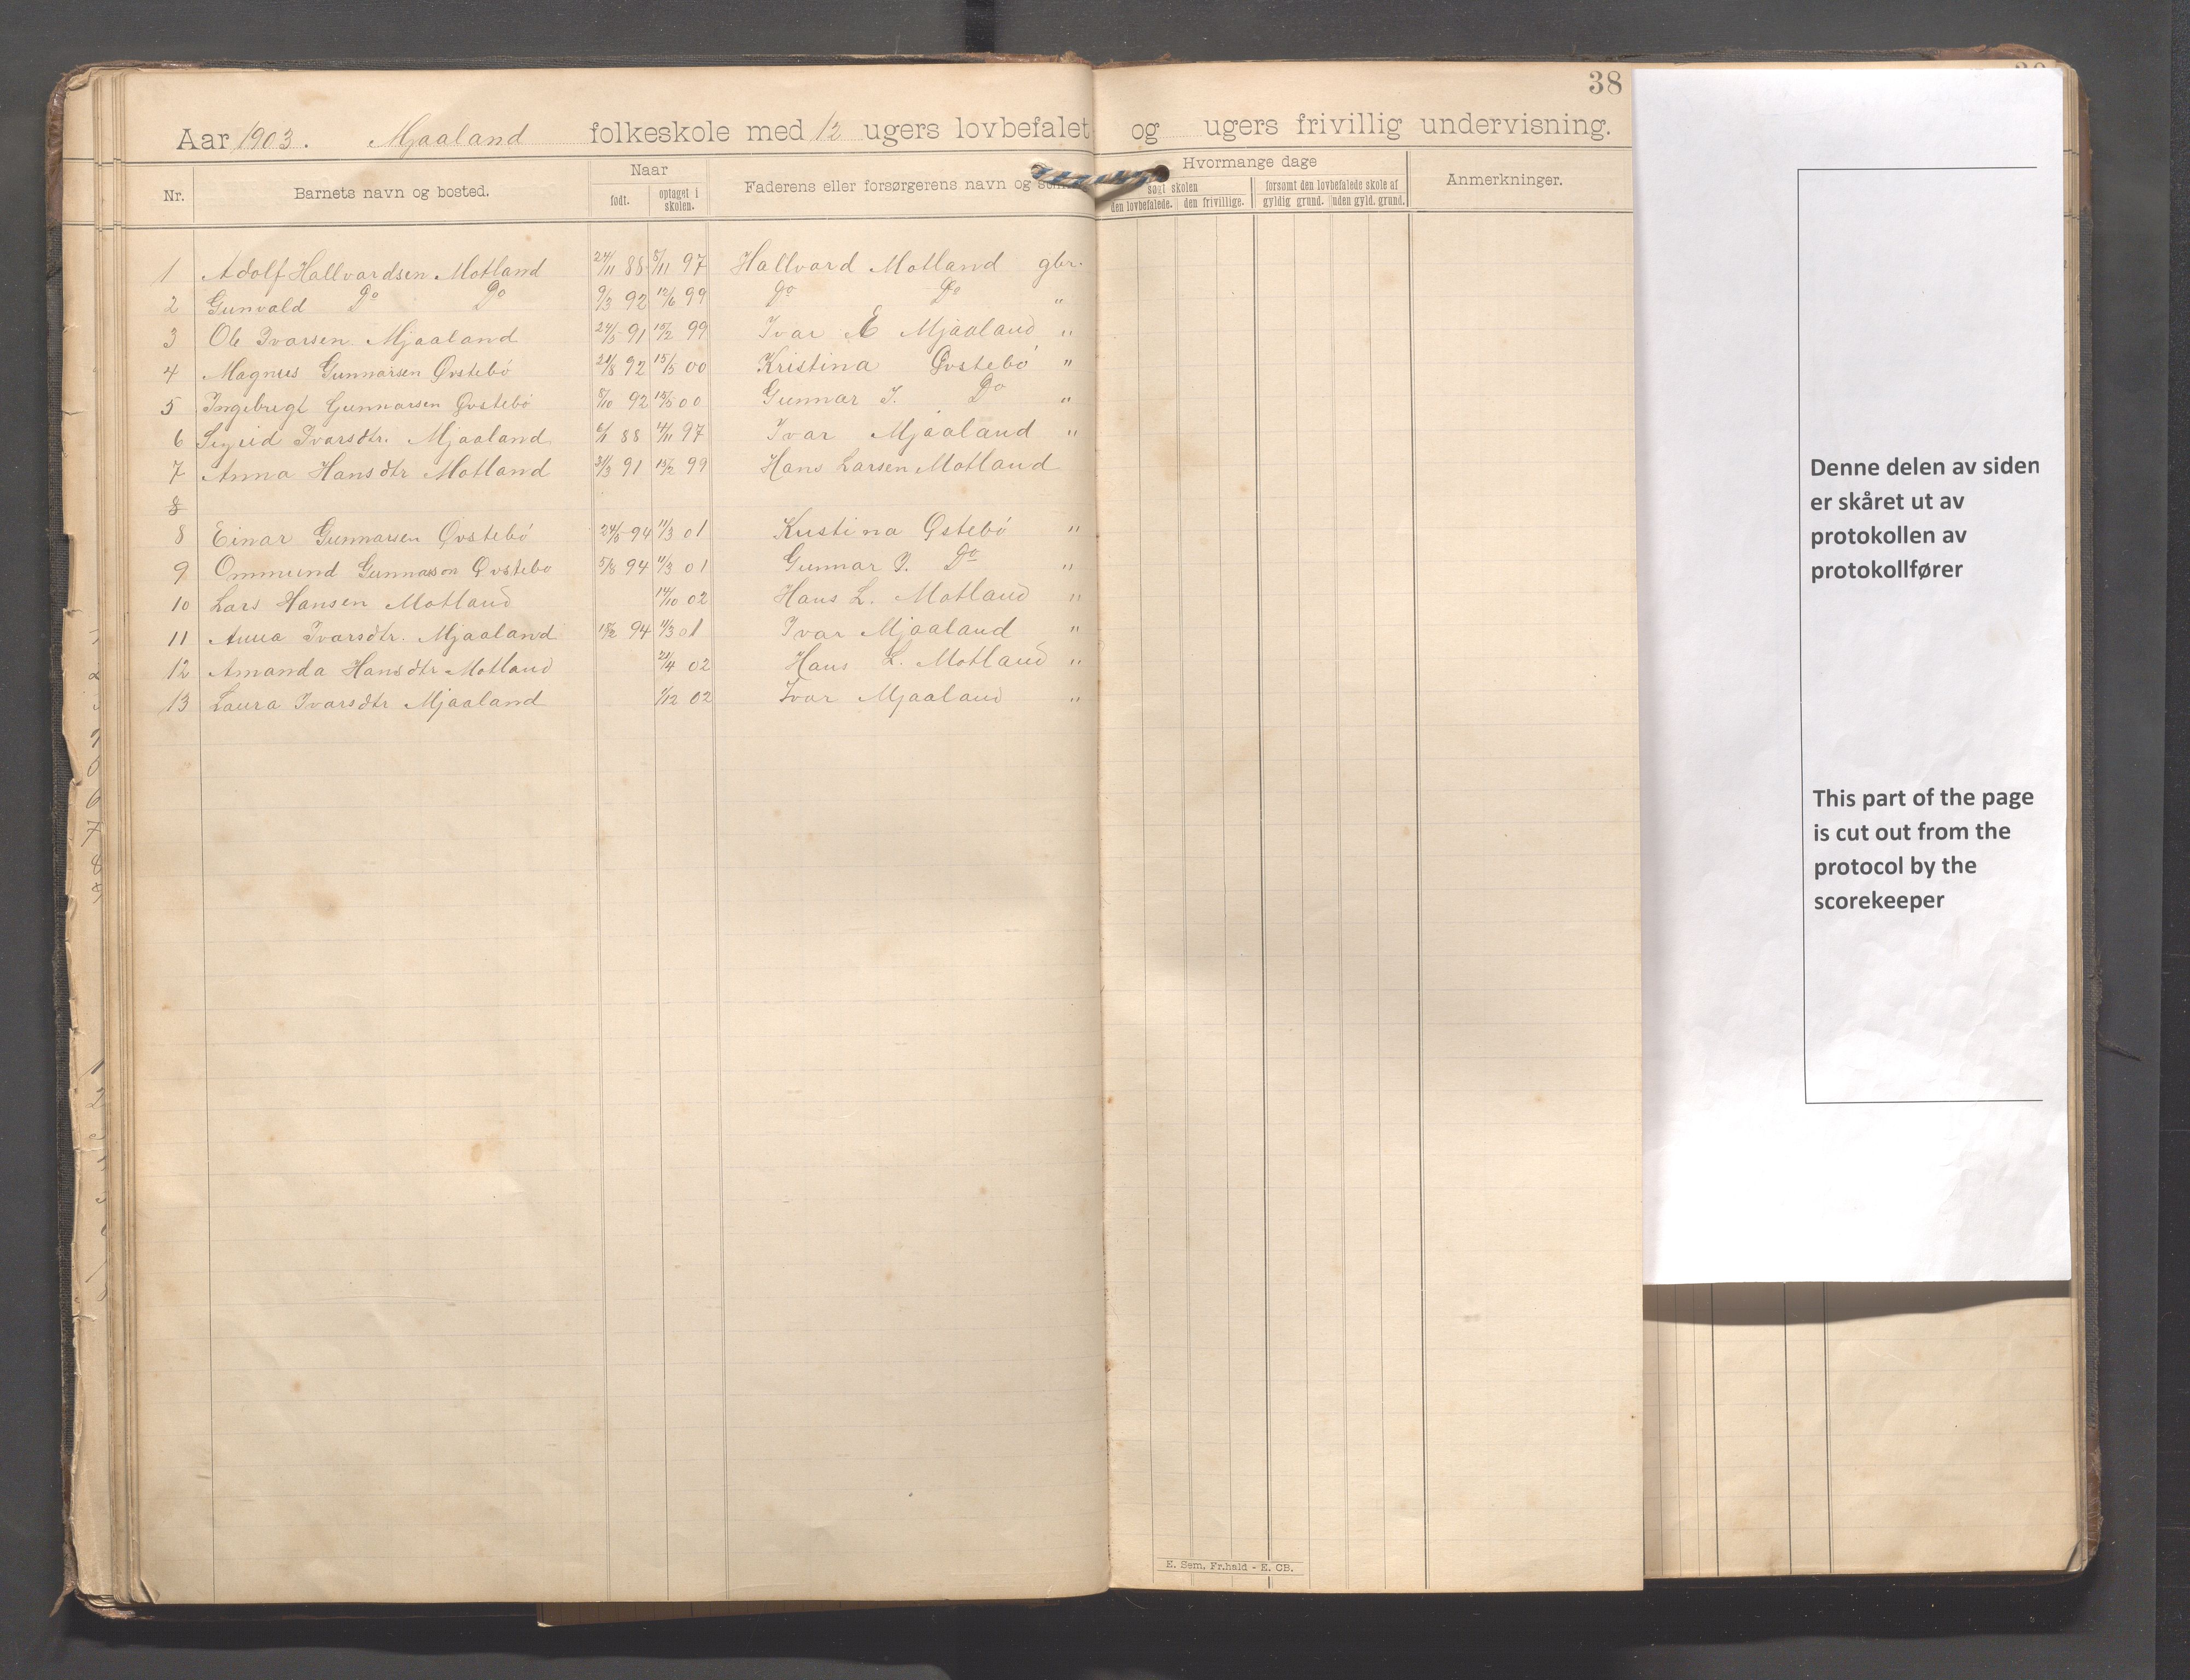 38
Aar 1903. Mjaaland folkeskole med 12 ugers lovbefalet og ugers frivillig undervisning.
Nr. Barnets navn og bosted. Naar født. optaget i skolen. Faderens eller forsørgerens navn og Hvormange dage søgt skolen den lovbefalede. den frivillige. forsømt den lovbefalede skole af gyldig grund. uden gyld. grund. Anmerkninger.
1 Adolf Hallvardsen Motland 24/11 88 5/11 97 Hallvard Motland gbr.
2 Gunvald Do Do 9/3 92 12/6 99 Do Do "
3 Ole Ivarsen Mjaaland 24/5 91 15/2 99 Ivar E Mjaaland "
4 Magnus Gunnarsen Øvstebö 21/8 92 15/5 00 Kristina Øvstebö "
5 Ingebregt Gunnarsen Øvstebö 8/10 92 15/5 00 Gunnar I. Do "
6 Sigrid Ivarsdtr. Mjaaland 88 4/11 97 Ivar Mjaaland "
7 Anna Hansdtr Motland 31/3 91 15/2 99 Hans Larsen Motland
8
8 Einar Gunnarsen Øvstebö 24/5 94 11/3 01 Kristina Østebö "
9 Ommund Gunnarson Øvstebo 5/8 94 11/3 01 Gunnar I. Do "
10 Lars Hansen Motland 14/10 02 Hans L. Motland "
11 Anna Ivarsdtr. Mjaaland 94 11/3 01 Ivar Mjaaland "
12 Amanda Hansdtr Motland 21/4 02 Hans L. Motland "
13 Laura Ivarsdtr Mjaaland 1/12 02 Ivar Mjaaland "
E. Sem, Fr.hald - E. CB.
Denne delen av siden
er skåret ut av
protokollen av
protokollfører
This part of the page
is cut out from the
protocol by the
scorekeeper